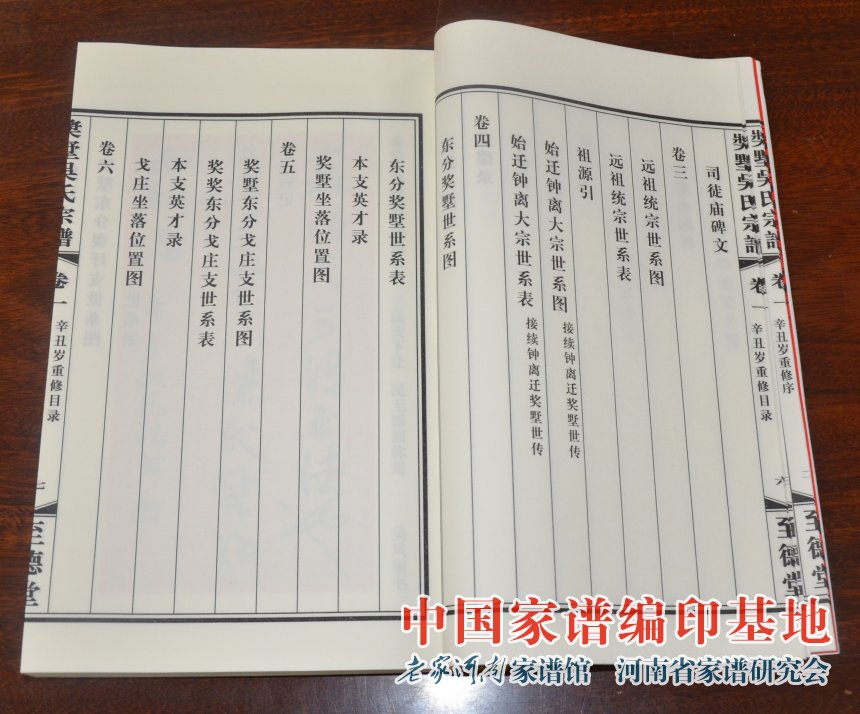 奖墅吴氏宗谱
卷一
辛丑岁重修序
至德堂
奖墅吴氏宗谱
卷一
辛丑岁重修目录
六
至德堂
司徒庙碑文
卷三
远祖统宗世系图
远祖统宗世系表
祖源引
始迁钟离大宗世系图 接续钟离迁奖墅世传
始迁钟离大宗世系表 接续钟离迁奖墅世传
卷四
东分奖墅世系图
东分奖墅世系表
本支英才录
奖墅坐落位置图
卷五
奖墅东分戈庄支世系图
奖奖东分戈庄支世系表
本支英才录
戈庄坐落位置图
卷六
奖墅吴氏宗谱
卷一
辛丑岁重修目录
至德堂
中国家谱编印基地
老家河南家谱馆 河南省家谱研究会